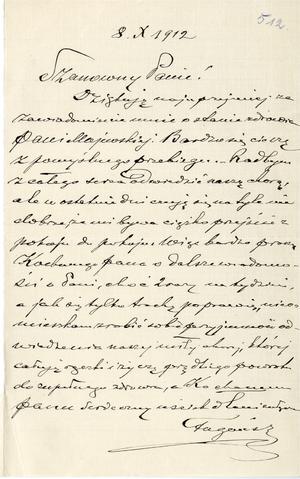 512
8. X 1912
Szanowny Panie!
Dziękuję najuprzejmiej za
zawiadomienie mnie o stanie zdrowia
Pani Majewskiej. Bardzo się cieszę
z pomyślnego przebiegu. – Radbym
z całego serca odwiedzić naszą chorą,
ale w ostatnie dni czuję się na tyle nie
dobrze, że mi bywa ciężko przejść z
pokoju do pokoju. Więc bardzo proszę
Kochanego Pana o dalsze wiadomo-
ści o Pani, choć 2 razy na tydzień,
a jak się tylko trochę poprawię, nie
omieszkam zrobić sobie przyjemność od-
wiedzenia naszej miłej chorej, której
całuję rączki i życzę prędkiego powrotu
do zupełnego zdrowia, a Kochanemu
Panu serdeczny uścisk dłoni